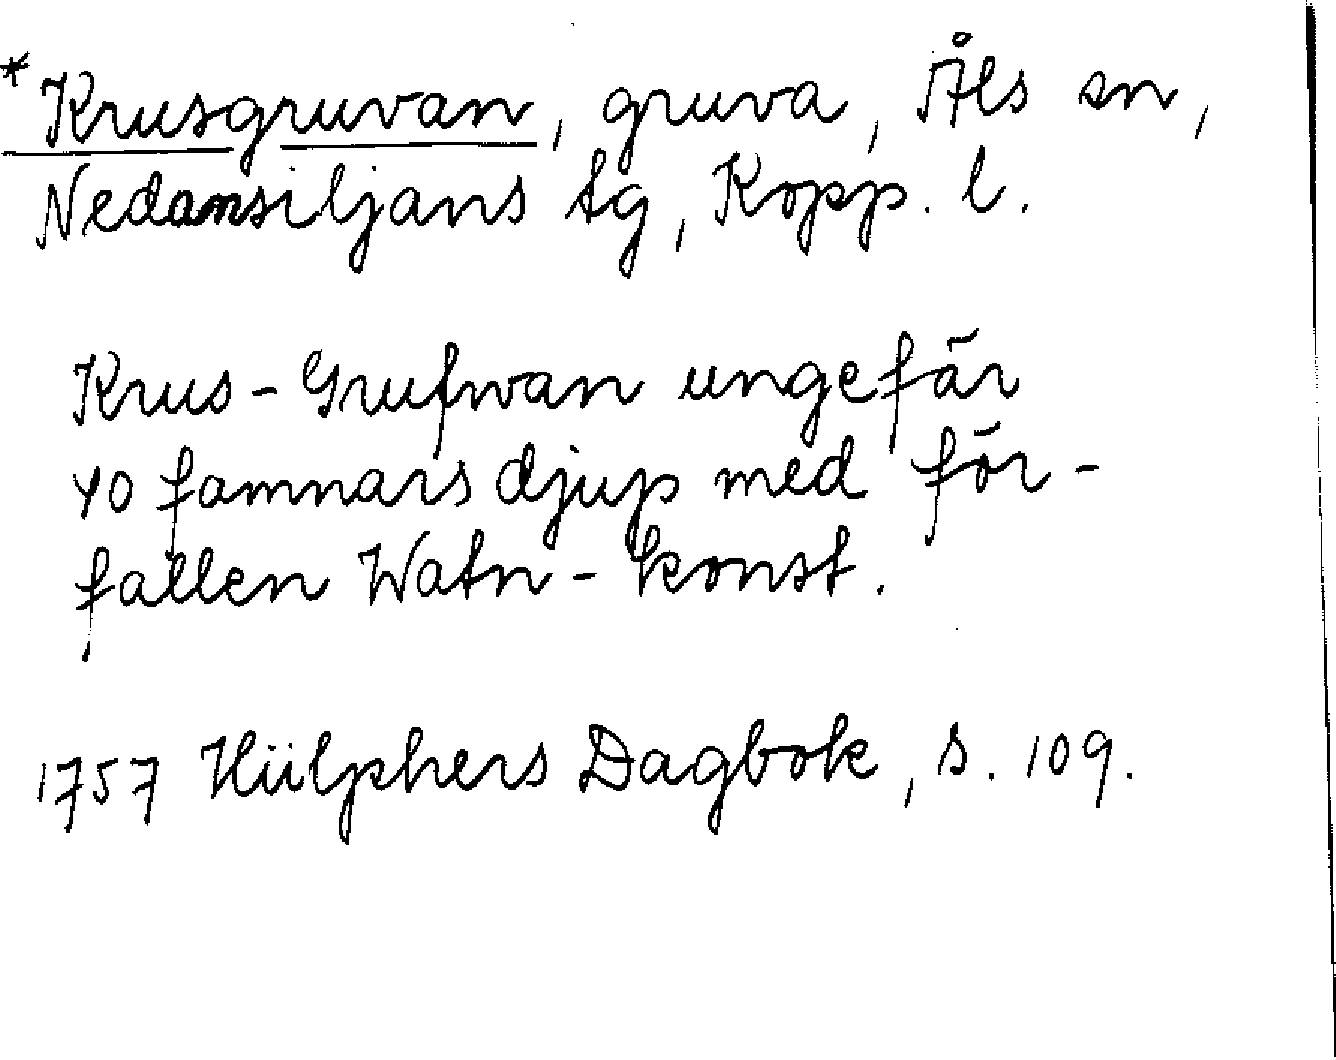 *Krusgruvan, gruva, Åls sn,
Nedansiljans tg, Kopp. l.
Krus-Grufwan ungefär
40 famnars djup med för-
fallen Watn-konst.
1757 Hülphers Dagbok, s. 109.